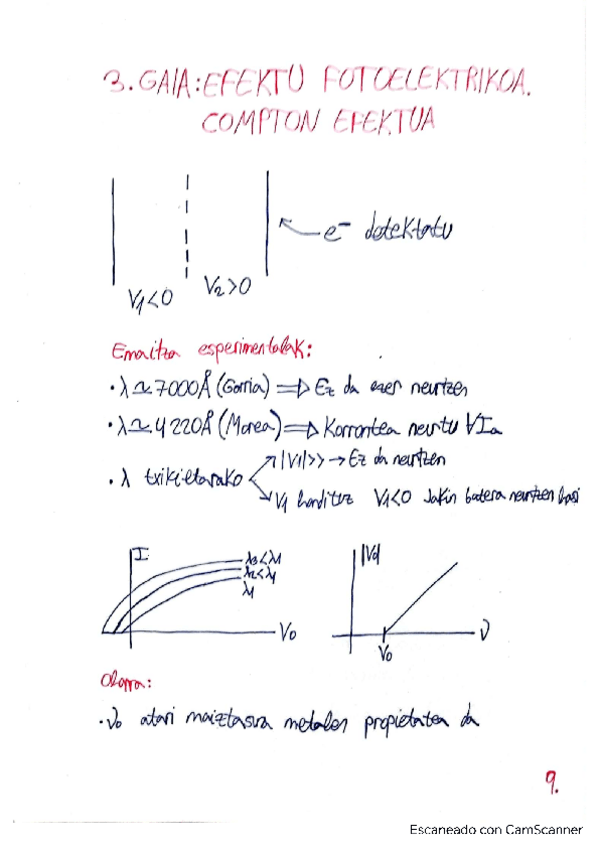 3. GAIA: EFEKTU FOTOELEKTRIKOA.
COMPTON EFEKTUA
e⁻ detektatu
V₁<0 V₂>0
Emaitza esperimentalak:
• λ≃7000Å (Gorria) ⇒ Ez da ezer neurtzen
• λ≃4220Å (Morea) ⇒ Korrontea neurtu ∀Iₐ
• λ txikietarako ↗ |V₁|>> → Ez da neurtzen
↘ V₁ handituz V₁<0 Jakin batera neurtzen hasi
I |V₀|
λ₃<λ₁
λ₂<λ₁
λ₁
V₀ ν
ν₀
Oharra:
• ν₀ atari maiztasuna metalen propietatea da
9.
Escaneado con CamScanner